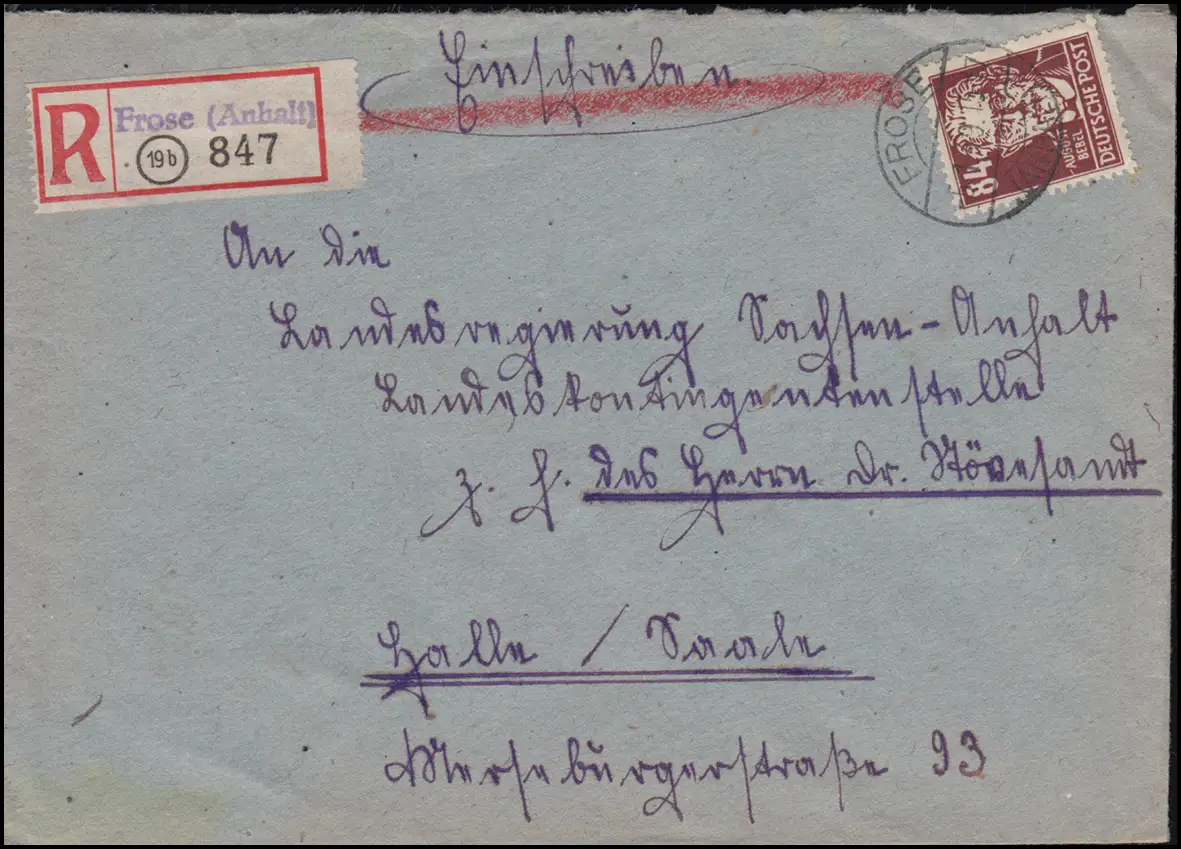 Einschreiben.
R Frose (Anhalt)
19b 847
FROSE
84
AUGUST BEBEL
DEUTSCHE POST
An die
Landesregierung Sachsen-Anhalt
Landeskontingentenstelle
z. H. des Herrn Dr. Stövesandt
Halle / Saale
Merseburgerstraße 93